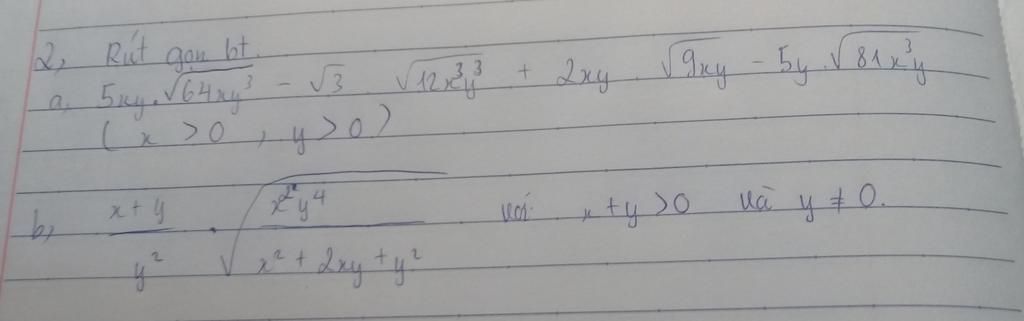 2, Rút gọn bt.
a, 5xy.√64xy³ - √3 . √12x³y³ + 2xy . √9xy - 5y.√81x³y
( x > 0 , y > 0 )
b, (x + y)/y² . √(x²y⁴/(x² + 2xy + y²)) với x + y > 0 và y ≠ 0.